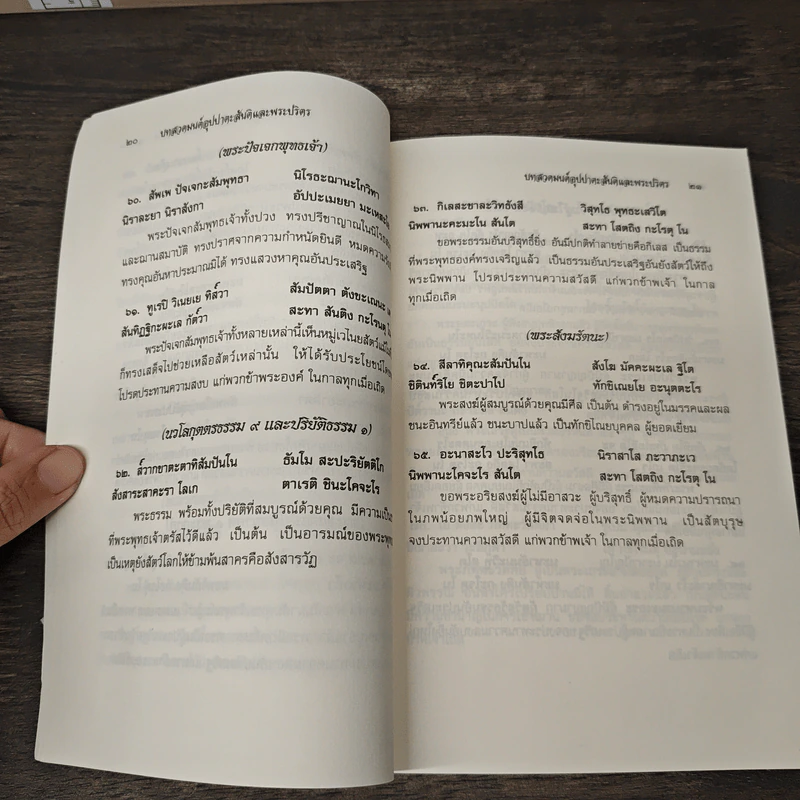 ๒๐ บทสวดมนต์อุปปาตะสันติและพระปริตร
(พระปัจเจกพุทธเจ้า)
๖๐. สัพเพ ปัจเจกะสัมพุทธา นิโรธะฌานะโกวิทา
นิราละยา นิราสังกา อัปปะเมยยา
พระปัจเจกสัมพุทธเจ้าทั้งปวง ทรงปรีชาญาณในนิโรธ
และฌานสมาบัติ ทรงปราศจากความกำหนัดยินดี หมดความ
ทรงคุณอันหาประมาณมิได้ ทรงแสวงหาคุณอันประเสริฐ
๖๑. ทูเรปิ วิเนยเย ทิส๎วา สัมปัตตา ตังขะเณนะ
สันทิฏฐิกะผะเล กัต๎วา สะทา สันติง กะโรนตุ
พระปัจเจกสัมพุทธเจ้าทั้งหลายเหล่านี้เห็นหมู่เวไนยสัตว์
ก็ทรงเสด็จไปช่วยเหลือสัตว์เหล่านั้น ให้ได้รับประโยชน์
โปรดประทานความสงบ แก่พวกข้าพระองค์ ในกาลทุกเมื่อเถิด
(นวโลกุตตรธรรม ๙ และปริยัติธรรม ๑)
๖๒. ส๎วากขาตะตาทิสัมปันโน ธัมโม สะปะริยัตติโก
สังสาระสาคะรา โลเก ตาเรติ ชินะโคจะโร
พระธรรม พร้อมทั้งปริยัติที่สมบูรณ์ด้วยคุณ มีความเป็น
ที่พระพุทธเจ้าตรัสไว้ดีแล้ว เป็นต้น เป็นอารมณ์ของพระพุทธ
เป็นเหตุยังสัตว์โลกให้ข้ามพ้นสาครคือสังสารวัฏ
บทสวดมนต์อุปปาตะสันติและพระปริตร ๒๑
๖๓. กิเลสะชาละวิทธังสี วิสุทโธ พุทธะเสวิโต
นิพพานะคะมะโน สันโต สะทา โสตถิง กะโรตุ โน
ขอพระธรรมอันบริสุทธิ์ยิ่ง อันมีปกติทำลายข่ายคือกิเลส เป็นธรรม
ที่พระพุทธองค์ทรงเจริญแล้ว เป็นธรรมอันประเสริฐอันยังสัตว์ให้ถึง
พระนิพพาน โปรดประทานความสวัสดี แก่พวกข้าพเจ้า ในกาล
ทุกเมื่อเถิด
(พระสังฆรัตนะ)
๖๔. สีลาทิคุณะสัมปันโน สังโฆ มัคคะผะเล ฐิโต
ชิตินท๎ริโย ชิตะปาโป ทักขิเณยโย อะนุตตะโร
พระสงฆ์ผู้สมบูรณ์ด้วยคุณมีศีล เป็นต้น ดำรงอยู่ในมรรคและผล
ชนะอินทรีย์แล้ว ชนะบาปแล้ว เป็นทักขิไณยบุคคล ผู้ยอดเยี่ยม
๖๕. อะนาสะโว ปะริสุทโธ นิราสาโส ภะวาภะเว
นิพพานะโคจะโร สันโต สะทา โสตถิง กะโรตุ โน
ขอพระอริยสงฆ์ผู้ไม่มีอาสวะ ผู้บริสุทธิ์ ผู้หมดความปรารถนา
ในภพน้อยภพใหญ่ ผู้มีจิตจดจ่อในพระนิพพาน เป็นสัตบุรุษ
จงประทานความสวัสดี แก่พวกข้าพเจ้า ในกาลทุกเมื่อเถิด